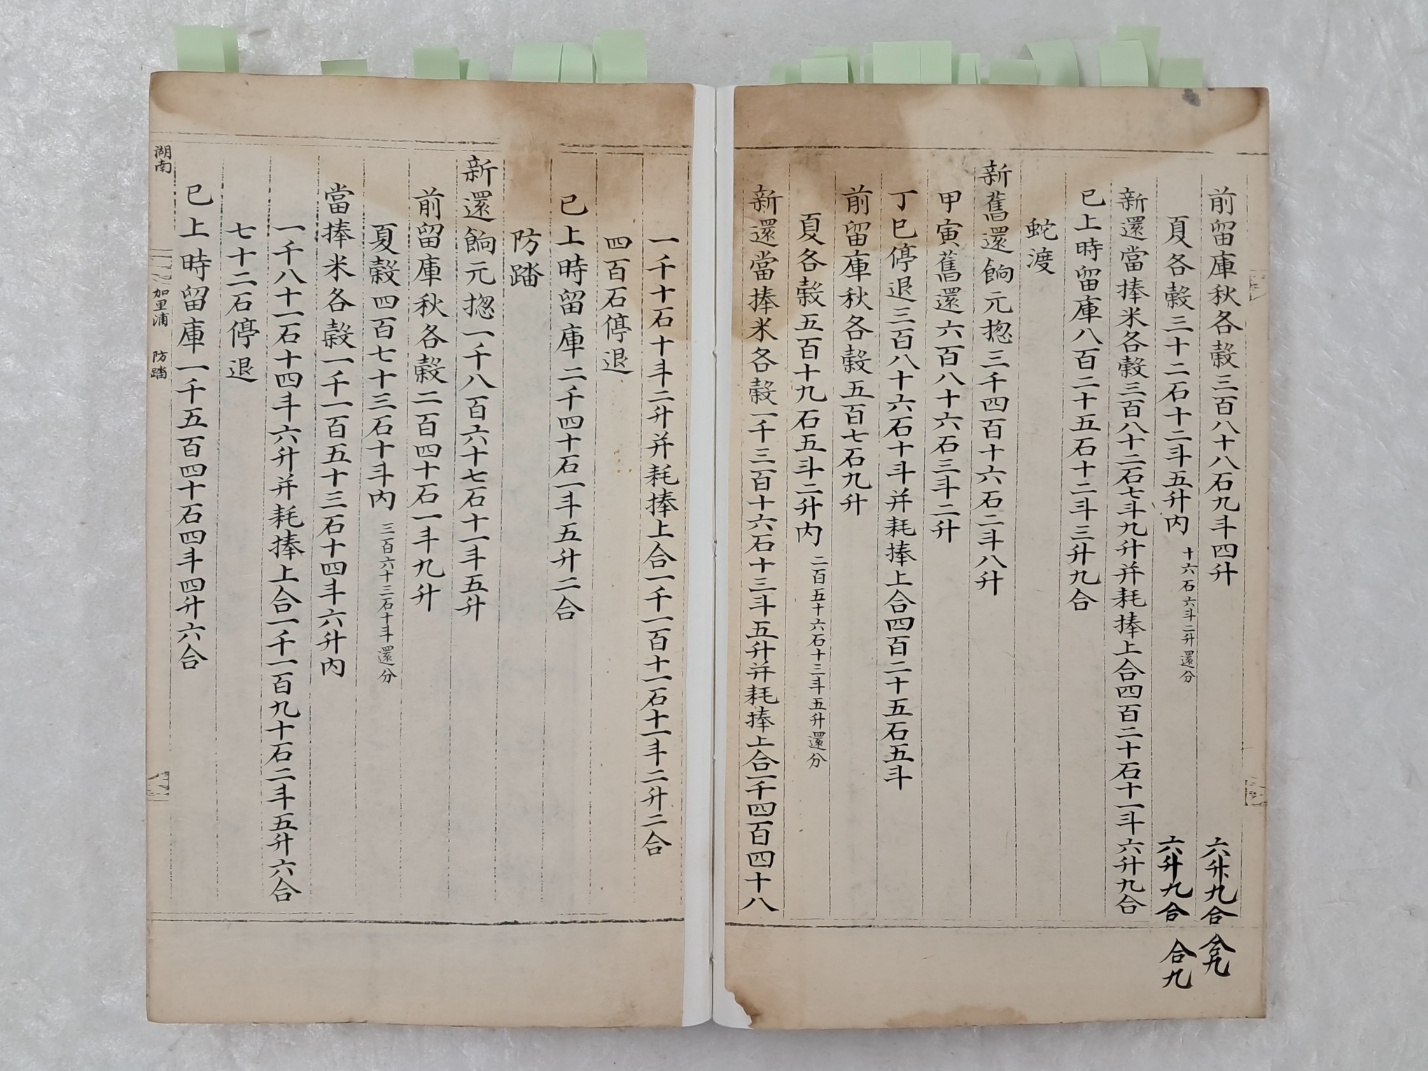 前留庫秋各穀三百八十八石九斗四升
六升九合
合九
夏各穀三十二石十二斗五升內
十六石六斗二升還分
六升九合
合九
新還當捧米各穀三百八十二石七斗九升幷耗捧上合四百二十石十一斗六升九合
已上時留庫八百二十五石十二斗三升九合
蛇渡
新舊還餉元摠三千四百十六石二斗八升
甲寅舊還六百八十六石三斗二升
丁巳停退三百八十六石十斗幷耗捧上合四百二十五石五斗
前留庫秋各穀五百七石九升
夏各穀五百十九石五斗二升內
二百五十六石十三斗五升還分
新還當捧米各穀一千三百十六石十三斗五升幷耗捧上合一千四百四十八
一千十石十斗二升幷耗捧上合一千一百十一石十一斗二升二合
四百石停退
已上時留庫二千四十石一斗五升二合
防踏
新還餉元摠一千八百六十七石十一斗五升
前留庫秋各穀二百四十石一斗九升
夏穀四百七十三石十斗內
三百六十三石十斗還分
當捧米各穀一千一百五十三石十四斗六升內
一千八十一石十四斗六升幷耗捧上合一千一百九十石二斗五升六合
七十二石停退
已上時留庫一千五百四十石四斗四升六合
湖南
加里浦 防踏